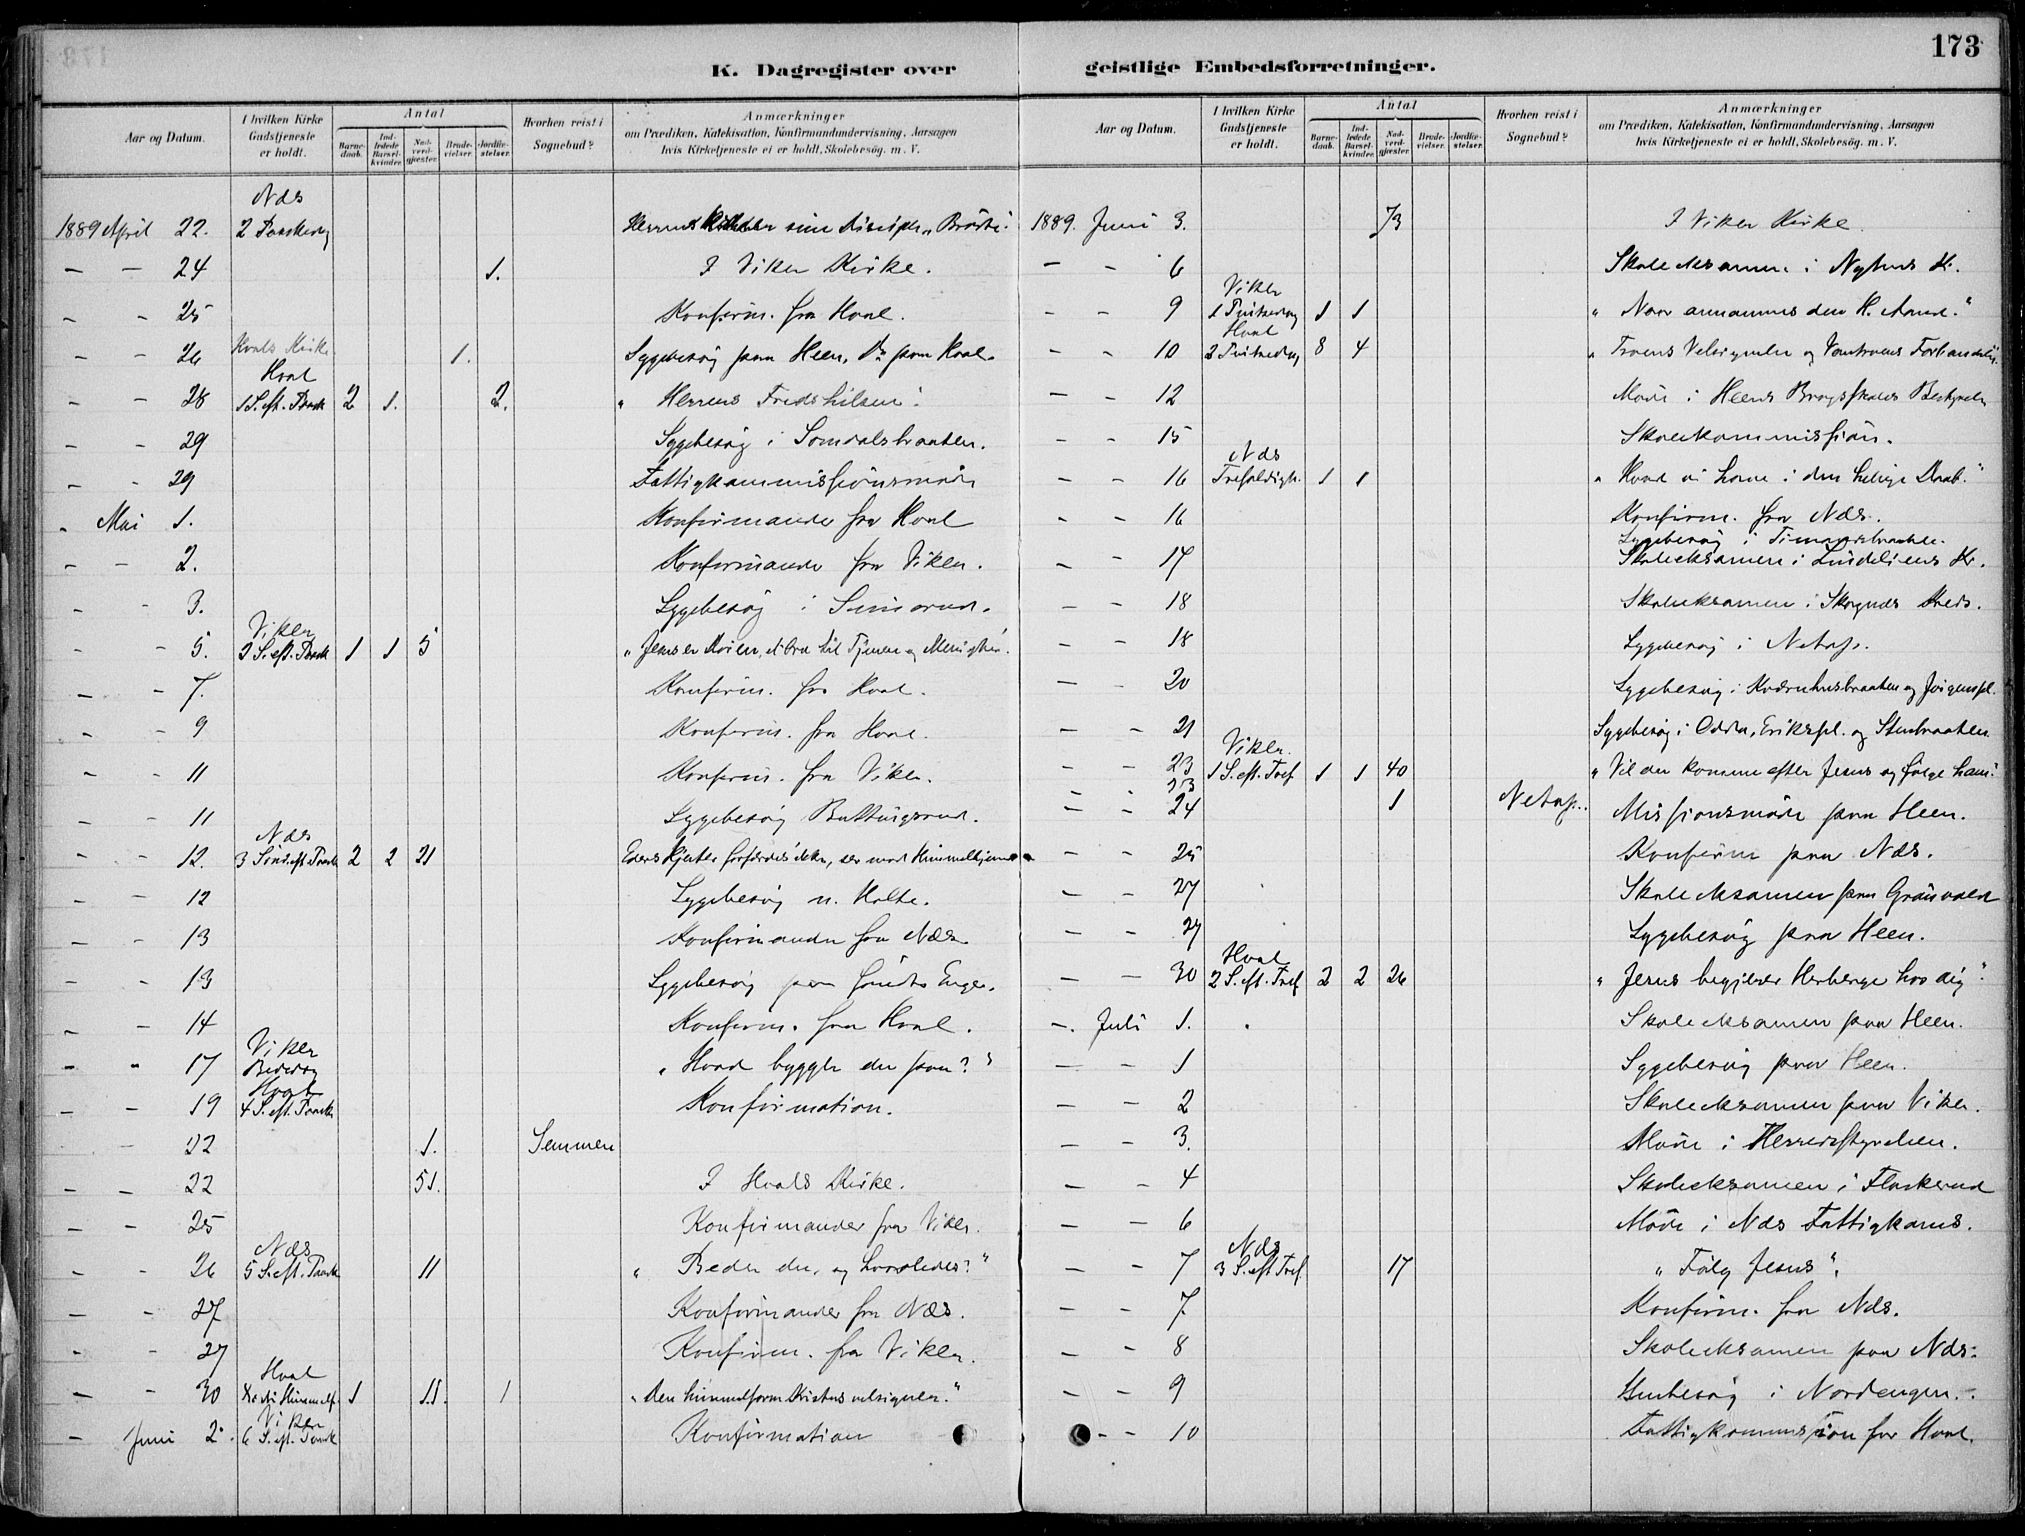 173
K. Dagregister over geistlige Embedsforretninger.
Aar og Datum. I hvilken Kirke Gudstjeneste er holdt. Antal Barnedaab. Indledede Barselkvinder. Nadverdgjæster. Brudevielser. Jordfæstelser. Hvorhen reist i Sognebud? Anmærkninger om Prædiken, Katekisation, Konfirmandundervisning, Aarsagen hvis Kirketjeneste ei er holdt, Skolebesøg. m. V.
Næs
1889 April 22. 2 Paaskedag Herrens sine Disciple
— — 24 1. I Viker Kirke.
— — 25 Konfirm. fra Hval.
— — 26 Hvals Kirke 1. Sygebesøg paa Heen, Do paa Hval.
Hval
— — 28 1 S. eft. Paask 2 1. 2. „ Herrens Fredshilsen".
— — 29 Sygebesøg i Somdalsbraaten.
— — 29 Fattigkommissionsmøde
„ Mai 1. Konfirmander fra Hval
— — 2. Konfirmander fra Viker.
— — 3. Sygebesøg i
Viker
— — 5. 2 S. eft. Paask 1 1 5 „Jesus er Døren, et Ord til Tjenere og Menighed".
— — 7. Konfirm. fra Hval.
— — 9 Konfirm. fra Hval.
— — 11 Konfirm. fra Viker.
— — 11 Sygebesøg Buttingsrud.
Næs
— — 12. 3 Sønd. eft. Paask 2 2 21 Eders Hjerter forfærdes ikke, ser mod Himmelhjemmet
— — 12 Sygebesøg n. Holte.
— — 13 Konfirmander fra Næs.
— — 13 Sygebesøg paa Enger.
— — 14 Konfirm. fra Hval.
Viker
— — 17 Bededag „Hvad bygger du paa?"
Hval
— — 19 4 S. eft. Paask Konfirmation.
— 22 1. Semmen
— — 22 51. I Hvals Kirke.
— — 25 Konfirmander fra Viker.
Næs
— — 26 5 S. eft. Paask 11 „ Beder du, og hvorledes?"
— — 27 Konfirmander fra Næs.
— — 27 Konfirm. fra Viker.
Hval
— — 30 Kristi Himmelf. 1 11. 1 „Den himmelfarne Kristus velsigner."
Viker
— Juni 2. 6 S. eft. Paask Konfirmation
Aar og Datum. I hvilken Kirke Gudstjeneste er holdt. Antal Barnedaab. Indledede Barselkvinder. Nadverdgjæster. Brudevielser. Jordfæstelser. Hvorhen reist i Sognebud? Anmærkninger om Prædiken, Katekisation, Konfirmandundervisning, Aarsagen hvis Kirketjeneste ei er holdt, Skolebesøg. m. V.
1889. Juni 3. 73 I Viker Kirke.
— — 6 Skoleeksamen i Kr.
Viker
— — 9 1 Pintsedag 1 1 „ Naar annammes den H. Aand."
Hval
— — 10 2 Pintsedag 8 4 „ Troens Velsignelse og Vantroens Forbandelse".
— — 12 Møde i Heens Brugsskoles Bestyrelse
— — 15 Skolekommission.
Næs
— — 16 Trefoldigh. 1 1 „ Hvad vi have i den hellige Daab."
— — 16 Konfirm. fra Næs.
Sygebesøg i
— 17 Skoleeksamen i Lindeliens Kr.
— — 18 Skoleeksamen i Skognæs Kreds.
— — 18 Sygebesøg i
— — 20 Sygebesøg i Kværnhusbraaten og Jørgenspl.
— — 21 Sygebesøg i Erikspl. og Stenbraaten
Viker.
— — 23 1 S. eft. Tref. 1 1 40 „ Vil du komme efter Jesus og følge ham".
23
— — 24 1 Missionsmøde paa Heen.
— — 25 Konfirm paa Næs.
— — 27 Skoleeksamen paa Grønvold
— — 27 Sygebesøg paa Heen.
Hval
— — 30 2 S. eft. Tref 2 2 26 „ Jesus begjærer Herberge hos dig".
—. Juli 1. Skoleeksamen paa Heen.
— — 1 Sygebesøg paa Heen.
— — 2 Skoleeksamen paa Viker.
— — 3. Møde i Herredsstyrelsen.
— — 4 Skoleeksamen i Flaskerud
— — 6 Møde i Næs Fattigkoms.
Næs
— — 7 3 S. eft Tref. 17 „ Følg Jesus".
— — 7. Konfirm. fra Næs.
— — 8 Skoleeksamen paa Næs.
— — 9 Husbesøg i Nordengen.
— — 10 Fattigkommission for Hval.